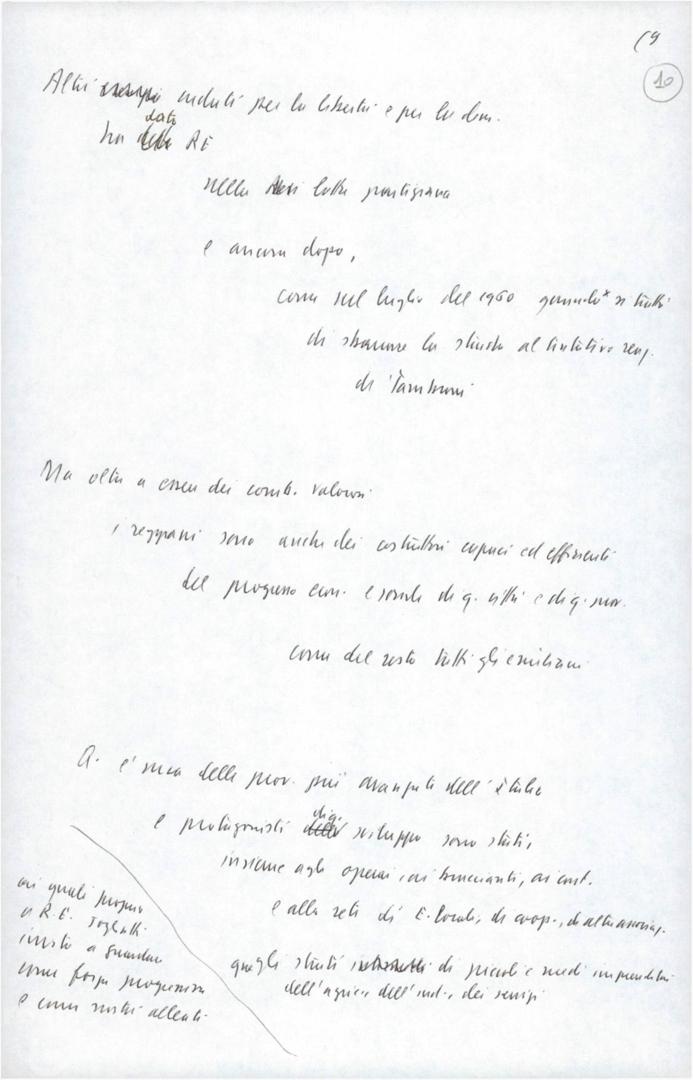 19
10
Altri caduti per la libertà e per la dem.
ha dato RE
nella lotta partigiana
e ancora dopo,
come nel luglio del 1960 quando x si trattò
di sbarrare la strada al tentativo reaz.
di Tambroni
Ma oltre a essere dei comb. valorosi
i reggiani sono anche dei costruttori capaci ed efficienti
del progresso econ. e sociale di q. città e di q. prov.
come del resto tutti gli emiliani
Q. è una delle prov. più avanzate dell'Italia
e protagonisti di q. sviluppo sono stati,
insieme agli operai, ai braccianti, ai cont.
e alla rete di E. locali, di coop., di altre associaz.
quegli strati di piccoli e medi imprenditori
dell'agric. dell'ind., dei servizi
ai quali proprio
a R.E. Togliatti
invitò a guardare
come forza progressiva
e come nostri alleati